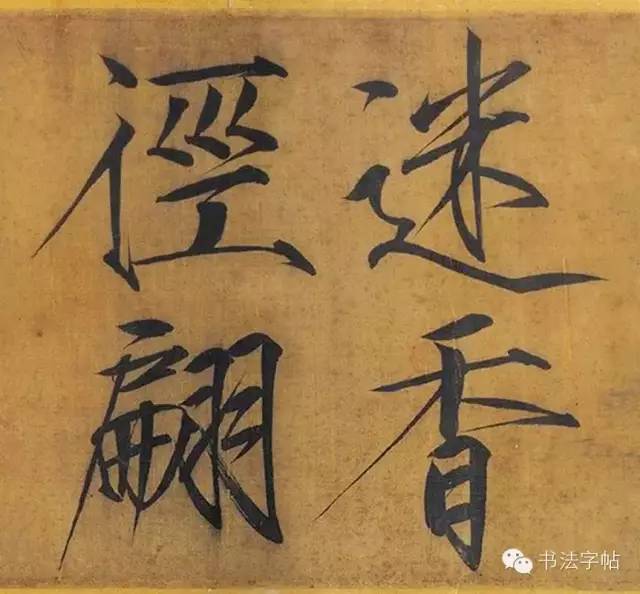 迷香
徑翩
书法字帖